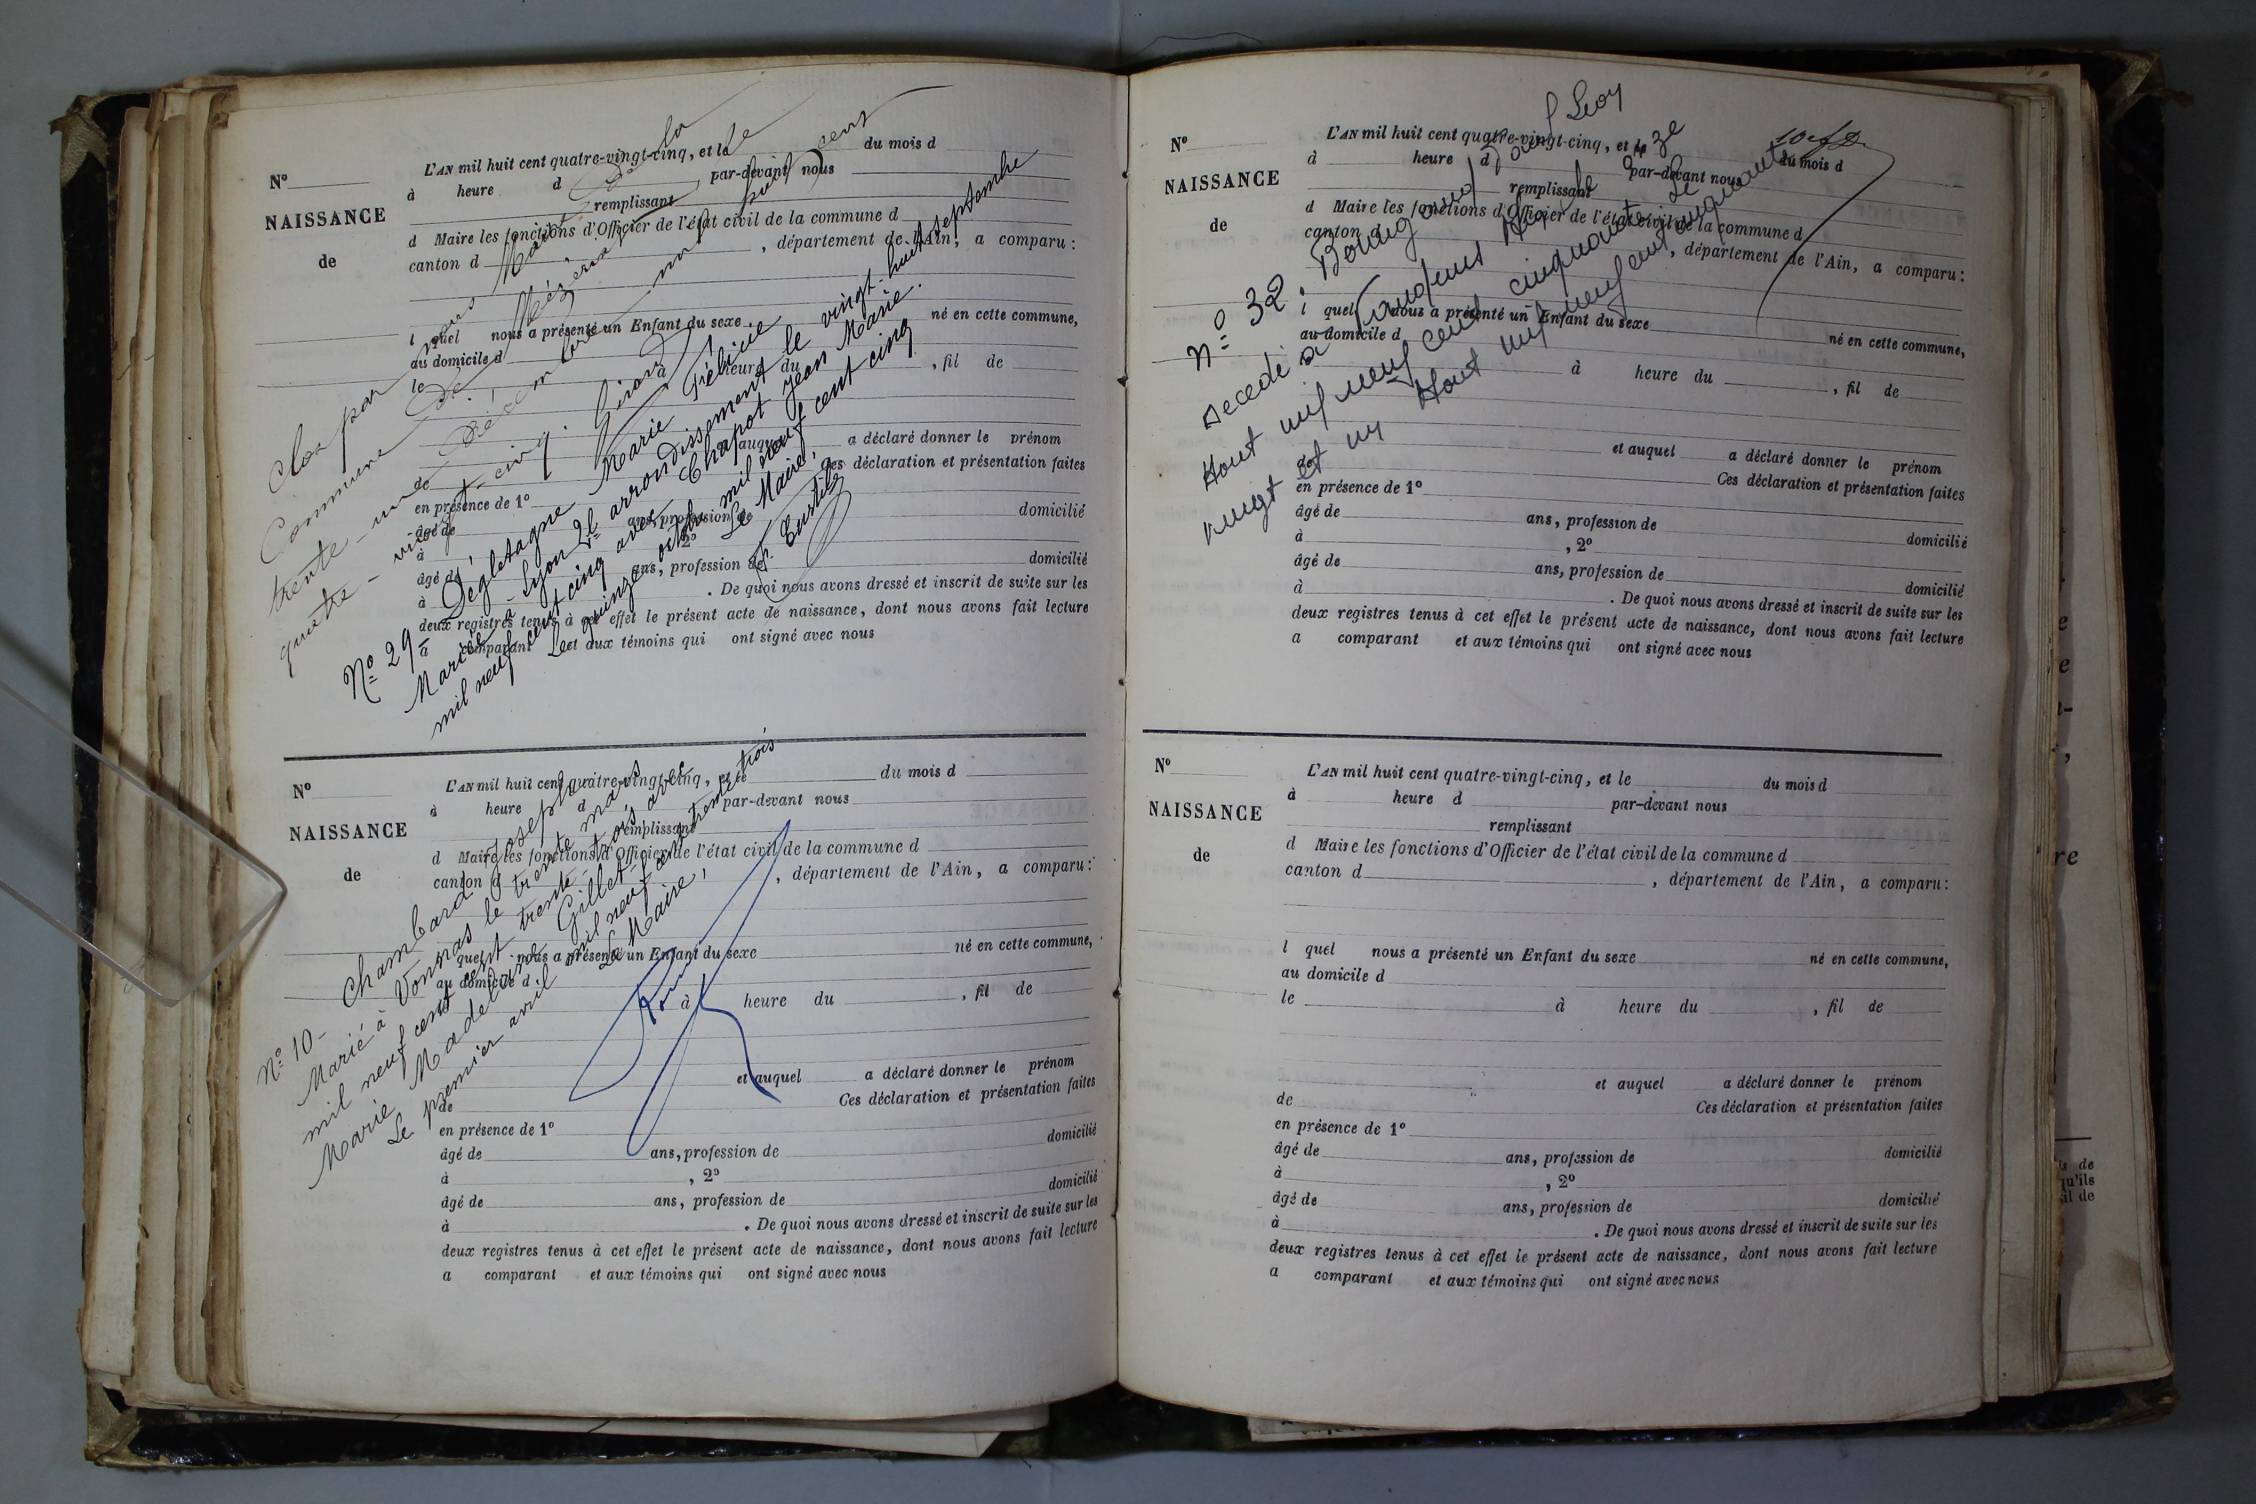 N°
NAISSANCE
de
L'AN mil huit cent quatre-vingt-cinq, et le du mois d
à heure d par-devant nous
remplissant
d Maire les fonctions d'Officier de l'état civil de la commune d
canton d , département de l'Ain, a comparu :
l quel nous a présenté un Enfant du sexe né en cette commune,
au domicile d
le à heure du , fil de
et auquel a déclaré donner le prénom
de Ces déclaration et présentation faites
en présence de 1°
âgé de ans, profession de domicilié
à , 2°
âgé de ans, profession de domicilié
à . De quoi nous avons dressé et inscrit de suite sur les
deux registres tenus à cet effet le présent acte de naissance, dont nous avons fait lecture
a comparant et aux témoins qui ont signé avec nous
Clos par nous Maire de la
Commune de Mézériat le
trente-un Décembre mil huit cent
quatre-vingt-cinq. Girard
N° 29 Dégletagne Marie Félicie
Mariée à Lyon 2e arrondissement le vingt-huit septembre
mil neuf cent cinq avec Chapot Jean Marie.
Le quinze octobre mil neuf cent cinq
Le Maire,
N°
NAISSANCE
de
L'AN mil huit cent quatre-vingt-cinq, et le du mois d
à heure d par-devant nous
remplissant
d Maire les fonctions d'Officier de l'état civil de la commune d
canton d , département de l'Ain, a comparu :
quel nous a présenté un Enfant du sexe né en cette commune,
au domicile d
à heure du , fil de
et auquel a déclaré donner le prénom
de Ces déclaration et présentation faites
en présence de 1°
âgé de ans, profession de domicilié
à , 2°
âgé de ans, profession de domicilié
à . De quoi nous avons dressé et inscrit de suite sur les
deux registres tenus à cet effet le présent acte de naissance, dont nous avons fait lecture
a comparant et aux témoins qui ont signé avec nous
N° 10 - Chambard Joseph
Marié à Vonnas le trente mars
mil neuf cent trente-trois avec
Marie Madeleine Gillet
Le premier avril mil neuf cent trente trois
Le Maire,
N°
NAISSANCE
de
L'AN mil huit cent quatre-vingt-cinq, et le du mois d
à heure d par-devant nous
remplissant
d Maire les fonctions d'Officier de l'état civil de la commune d
canton d , département de l'Ain, a comparu :
l quel nous a présenté un Enfant du sexe né en cette commune,
au domicile d
à heure du , fil de
et auquel a déclaré donner le prénom
de Ces déclaration et présentation faites
en présence de 1°
âgé de ans, profession de domicilié
à , 2°
âgé de ans, profession de domicilié
à . De quoi nous avons dressé et inscrit de suite sur les
deux registres tenus à cet effet le présent acte de naissance, dont nous avons fait lecture
a comparant et aux témoins qui ont signé avec nous
n° 32 :
Décédé à le onze
Aout mil neuf cent cinquante Le
vingt et un Aout mil neuf cent cinquante
N°
NAISSANCE
de
L'AN mil huit cent quatre-vingt-cinq, et le du mois d
à heure d par-devant nous
remplissant
d Maire les fonctions d'Officier de l'état civil de la commune d
canton d , département de l'Ain, a comparu :
l quel nous a présenté un Enfant du sexe né en cette commune,
au domicile d
le à heure du , fil de
et auquel a déclaré donner le prénom
de Ces déclaration et présentation faites
en présence de 1°
âgé de ans, profession de domicilié
à , 2°
âgé de ans, profession de domicilié
à . De quoi nous avons dressé et inscrit de suite sur les
deux registres tenus à cet effet le présent acte de naissance, dont nous avons fait lecture
a comparant et aux témoins qui ont signé avec nous